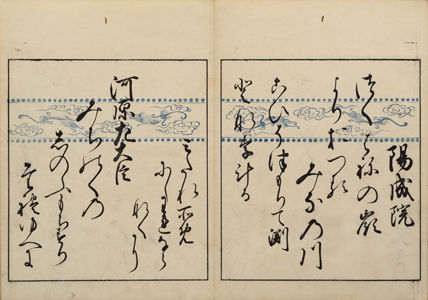 陽成院
つくはねの嶺
よりおつる
みなの川
こひそつもりて淵
となり計る
河原左大臣
みちのくの
しのふもちすり
たれゆへに
みたれ所免
にし